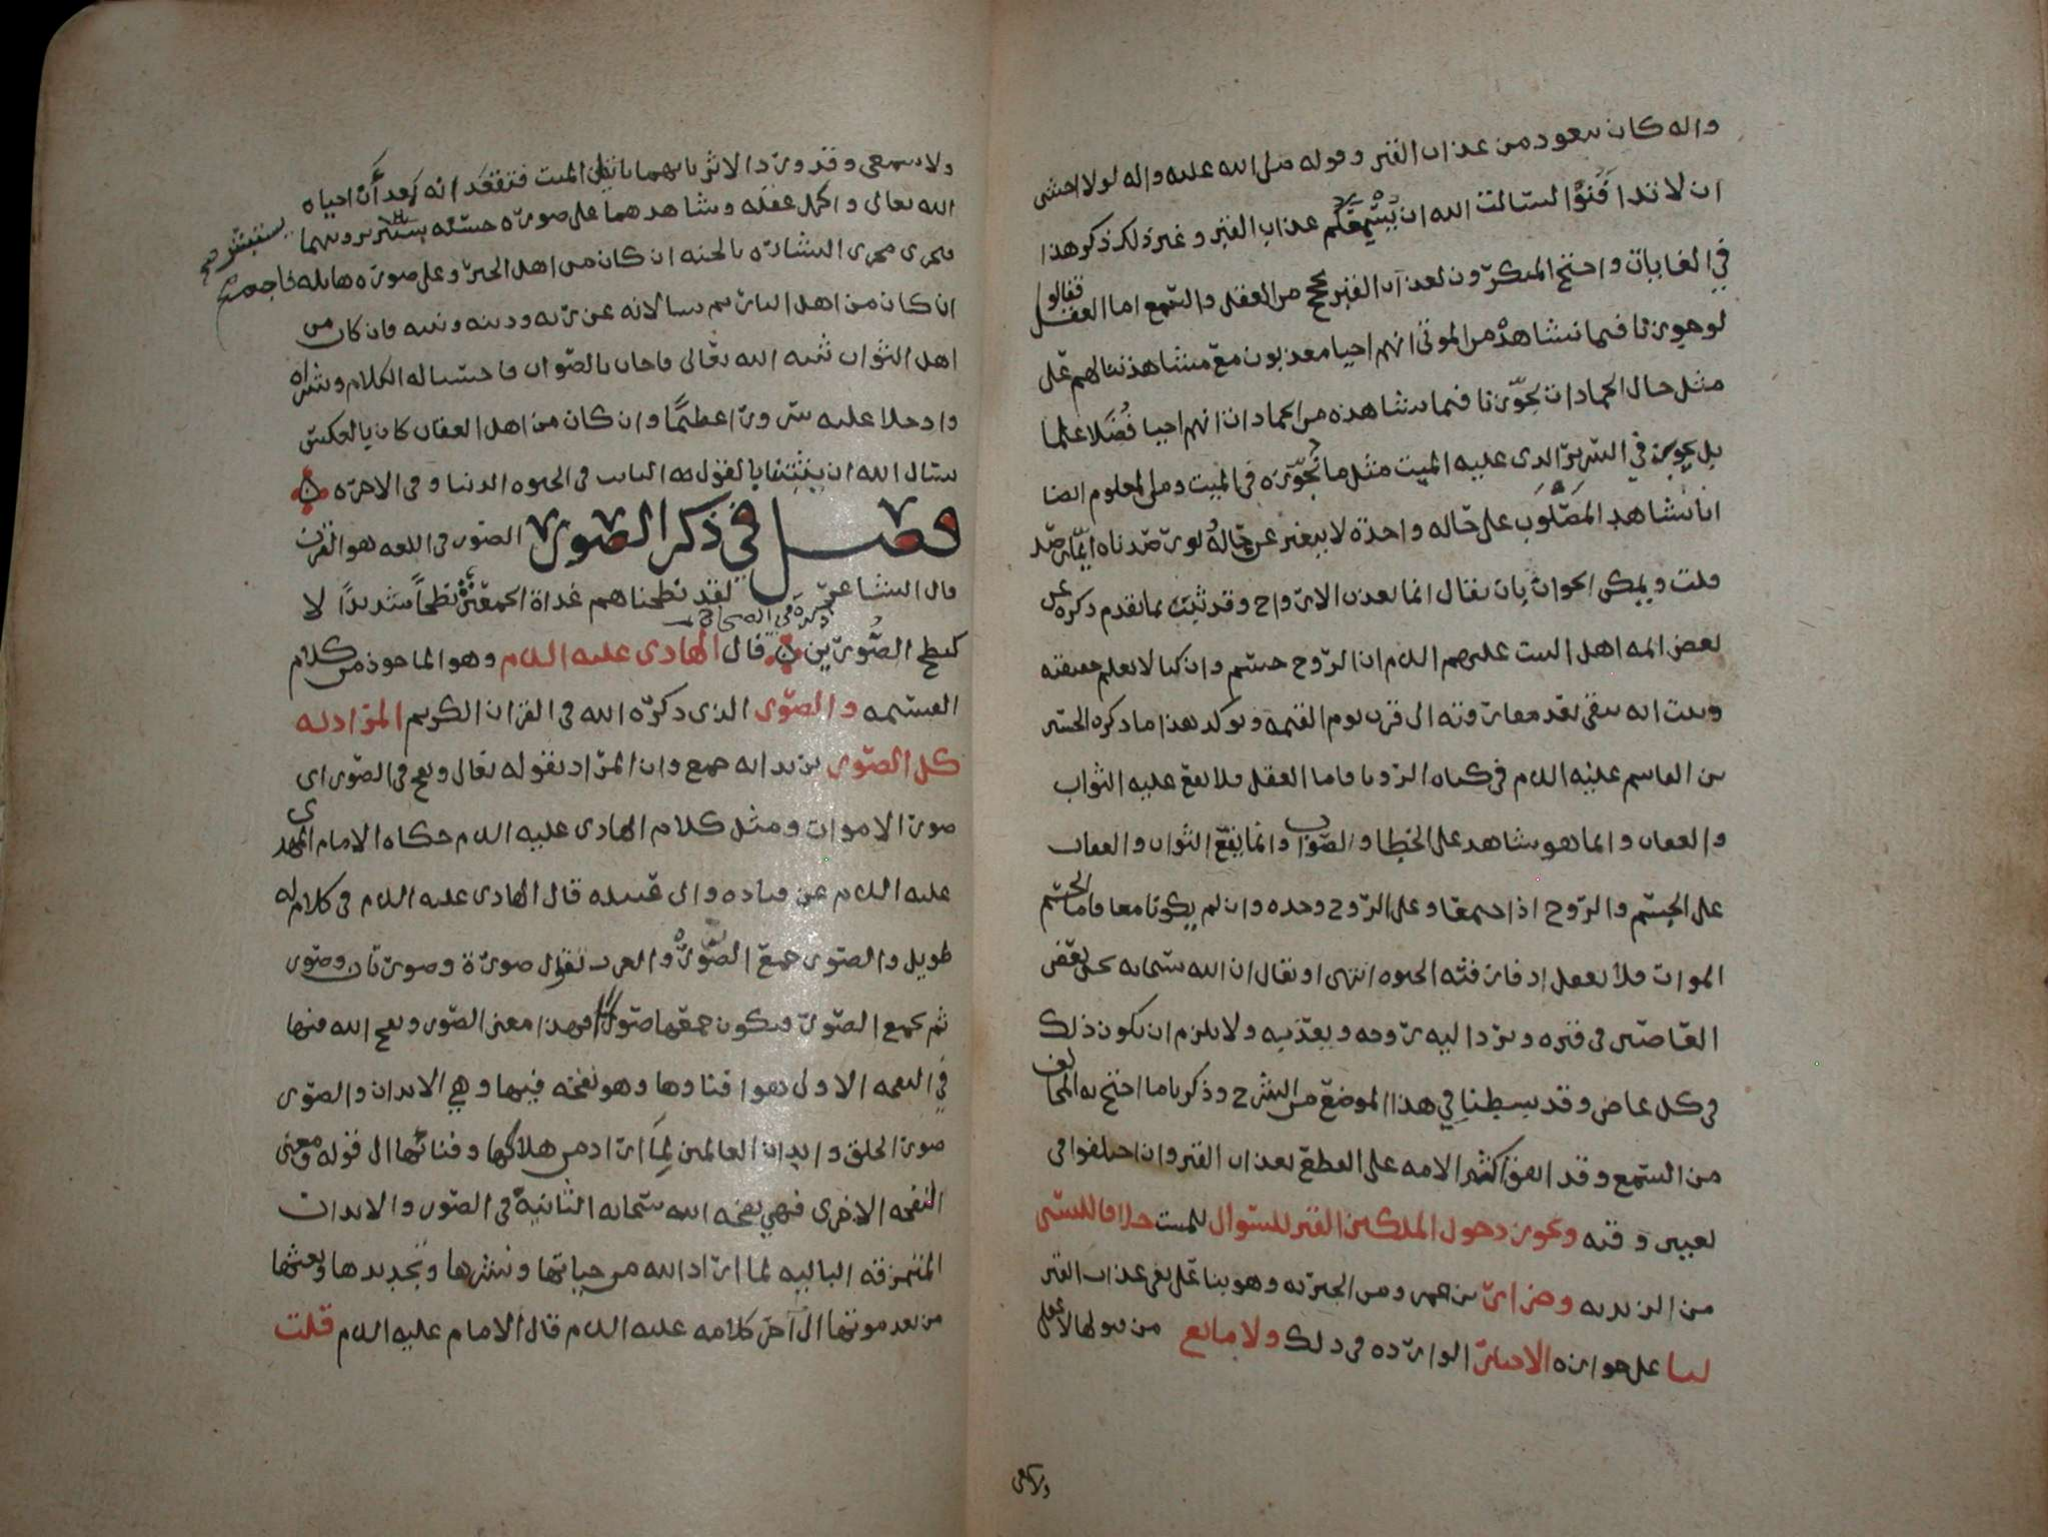 واله كان يتعوذ من عذاب القبر وقوله صلى الله عليه واله لولا اخشى
ان لا تدافنوا لسالت الله ان يسمعكم عذاب القبر وغير ذلك ذكر هذا
في الغايات واحتج المنكرون لعذاب القبر بحجج من العقل والسمع اما العقل فقالوا
لو جوزنا فيما نشاهد من الموتى انهم احيا معذبون مع مشاهدتنا لهم على
مثل حال الجمادات لجوزنا فيما نشاهده من الجمادات انهم احيا فضلا علما
بل يجوز في السرير الذي عليه الميت مثل ما نجوزه في الميت ومن المعلوم ايضا
انا نشاهد المصلوب على حاله واحدة لا يتغير عن حاله لو رصدناه اتم رصد
قلت ويمكن الجواب بان يقال انما يعذب الارواح وقد ثبت بما تقدم ذكره عن
بعض ائمه اهل البيت عليهم السلام ان الروح جسم وان كنا لا نعلم حقيقته
وثبت انه يبقى بعد مفارقته الى قرب يوم القيمه ويوكد هذا ما ذكره الحسين
بن القاسم عليه السلام في كتاب الرد فاما العقل فلا يقع عليه الثواب
والعقاب وانما هو شاهد على الخطا والصواب وانما يقع الثواب والعقاب
على الجسم والروح اذا اجتمعا وعلى الروح وحده وان لم يكونا معا فاما الجسم
الموات فلا يعقل اذ فارقته الحيوه انتهى او يقال ان الله سبحانه يحيي بعض
العاصين في قبره ويرد اليه روحه ويعذبه ولا يلزم ان يكون ذلك
في كل عاص وقد بسطنا في هذا الموضع من الشرح وذكرنا ما احتج به المخالف
من السمع وقد اتفق اكثر الامه على القطع بعذاب القبر وان اختلفوا في
تعيين وقته ويجوز دخول الملكين القبر للسوال للميت خلافا للبستي
من الزيديه وضرار بن عمرو ومن المجبره وهو بنا على نفي عذاب القبر
لنا على جوازه الاخبار الوارده في ذلك ولا مانع من قبولها لا عقلي
ولا سمعي
ولا سمعي وقد ورد الاثر بانهما ياتيان الميت فتقعد انه بعد ان احياه
الله تعالى واكمل عقله وشاهدهما على صورة حسنه يستبشر برويتهما
يستبشر صح
فيجري مجرى البشارة بالجنه ان كان من اهل الخير وعلى صوره هايله فاجعه
ان كان من اهل النار ثم يسالانه عن ربه ودينه ونبيه فان كان من
اهل الثواب ثبته الله تعالى فاجاب بالصواب فاحسنا له الكلام وبشراه
وادخلا عليه سرورا عظيما وان كان من اهل العقاب كان بالعكس
نسال الله ان يثبتنا بالقول الثابت في الحيوه الدنيا وفي الاخره
فصل في ذكر الصور الصور في اللغه هو القرن
قال الشاعر لقد نطحناهم غداة الجمعين نطحا شديدا لا
ذكره في الصحاح
كنطح الصورين قال الهادي عليه السلام وهو الماخوذ من كلام
القسم والصور الذي ذكره الله في القران الكريم المراد به
كل الصور يريد انه جمع وان المراد بقوله تعالى ونفخ في الصور اى
صور الاموات ومثل كلام الهادي عليه السلام حكاه الامام المهدي
عليه السلام عن قتاده وابي عبيده قال الهادي عليه السلام في كلام له
طويل والصور جمع الصور والعرب تقول صورة وصورتان وصور
ثم يجمع الصور فيكون جمعها صورا فهذا معنى الصور ونفخ الله فيها
في النفخه الاولى هو افناوها وهو نفخه فيها وهي الابدان والصور
صور الخلق وابدان العالمين لما اراد من هلاكها وفنائها الى قوله ومعنى
النفخه الاخرى فهي نفخه الله سبحانه الثانية في الصور والابدان
المتمزقه الباليه لما اراد الله من حياتها ونشرها وتجديدها وبعثها
من بعد موتها الى آخر كلامه عليه السلام قال الامام عليه السلام قلت